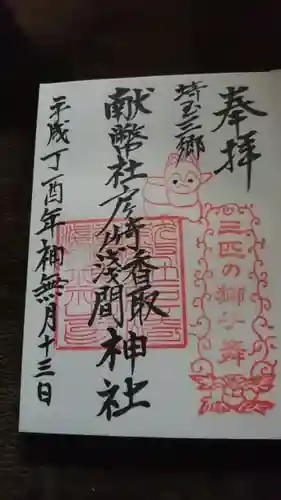 奉拝
三匹の獅子舞
埼玉三郷
献幣社戸ヶ崎香取浅間神社
平成丁酉年神無月十三日